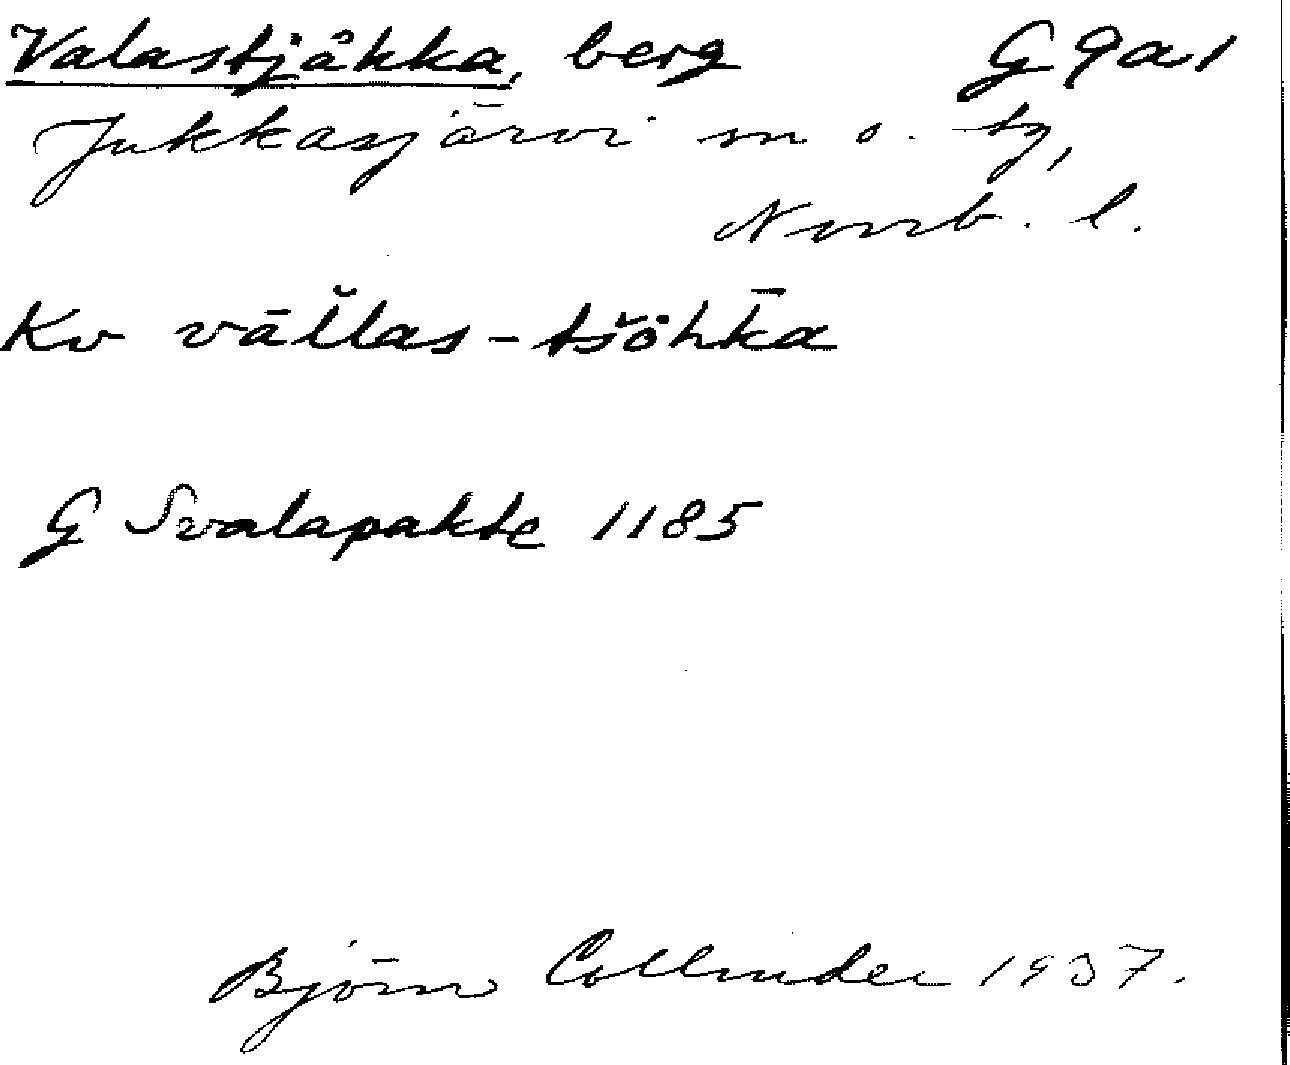 Valastjåkka, berg G 9a1
Jukkasjärvi sn o. tg,
Norrb. l.
Kv vāl̆las-tšöhk̄a
G Svalapakte 1185
Björn Collinder 1937.